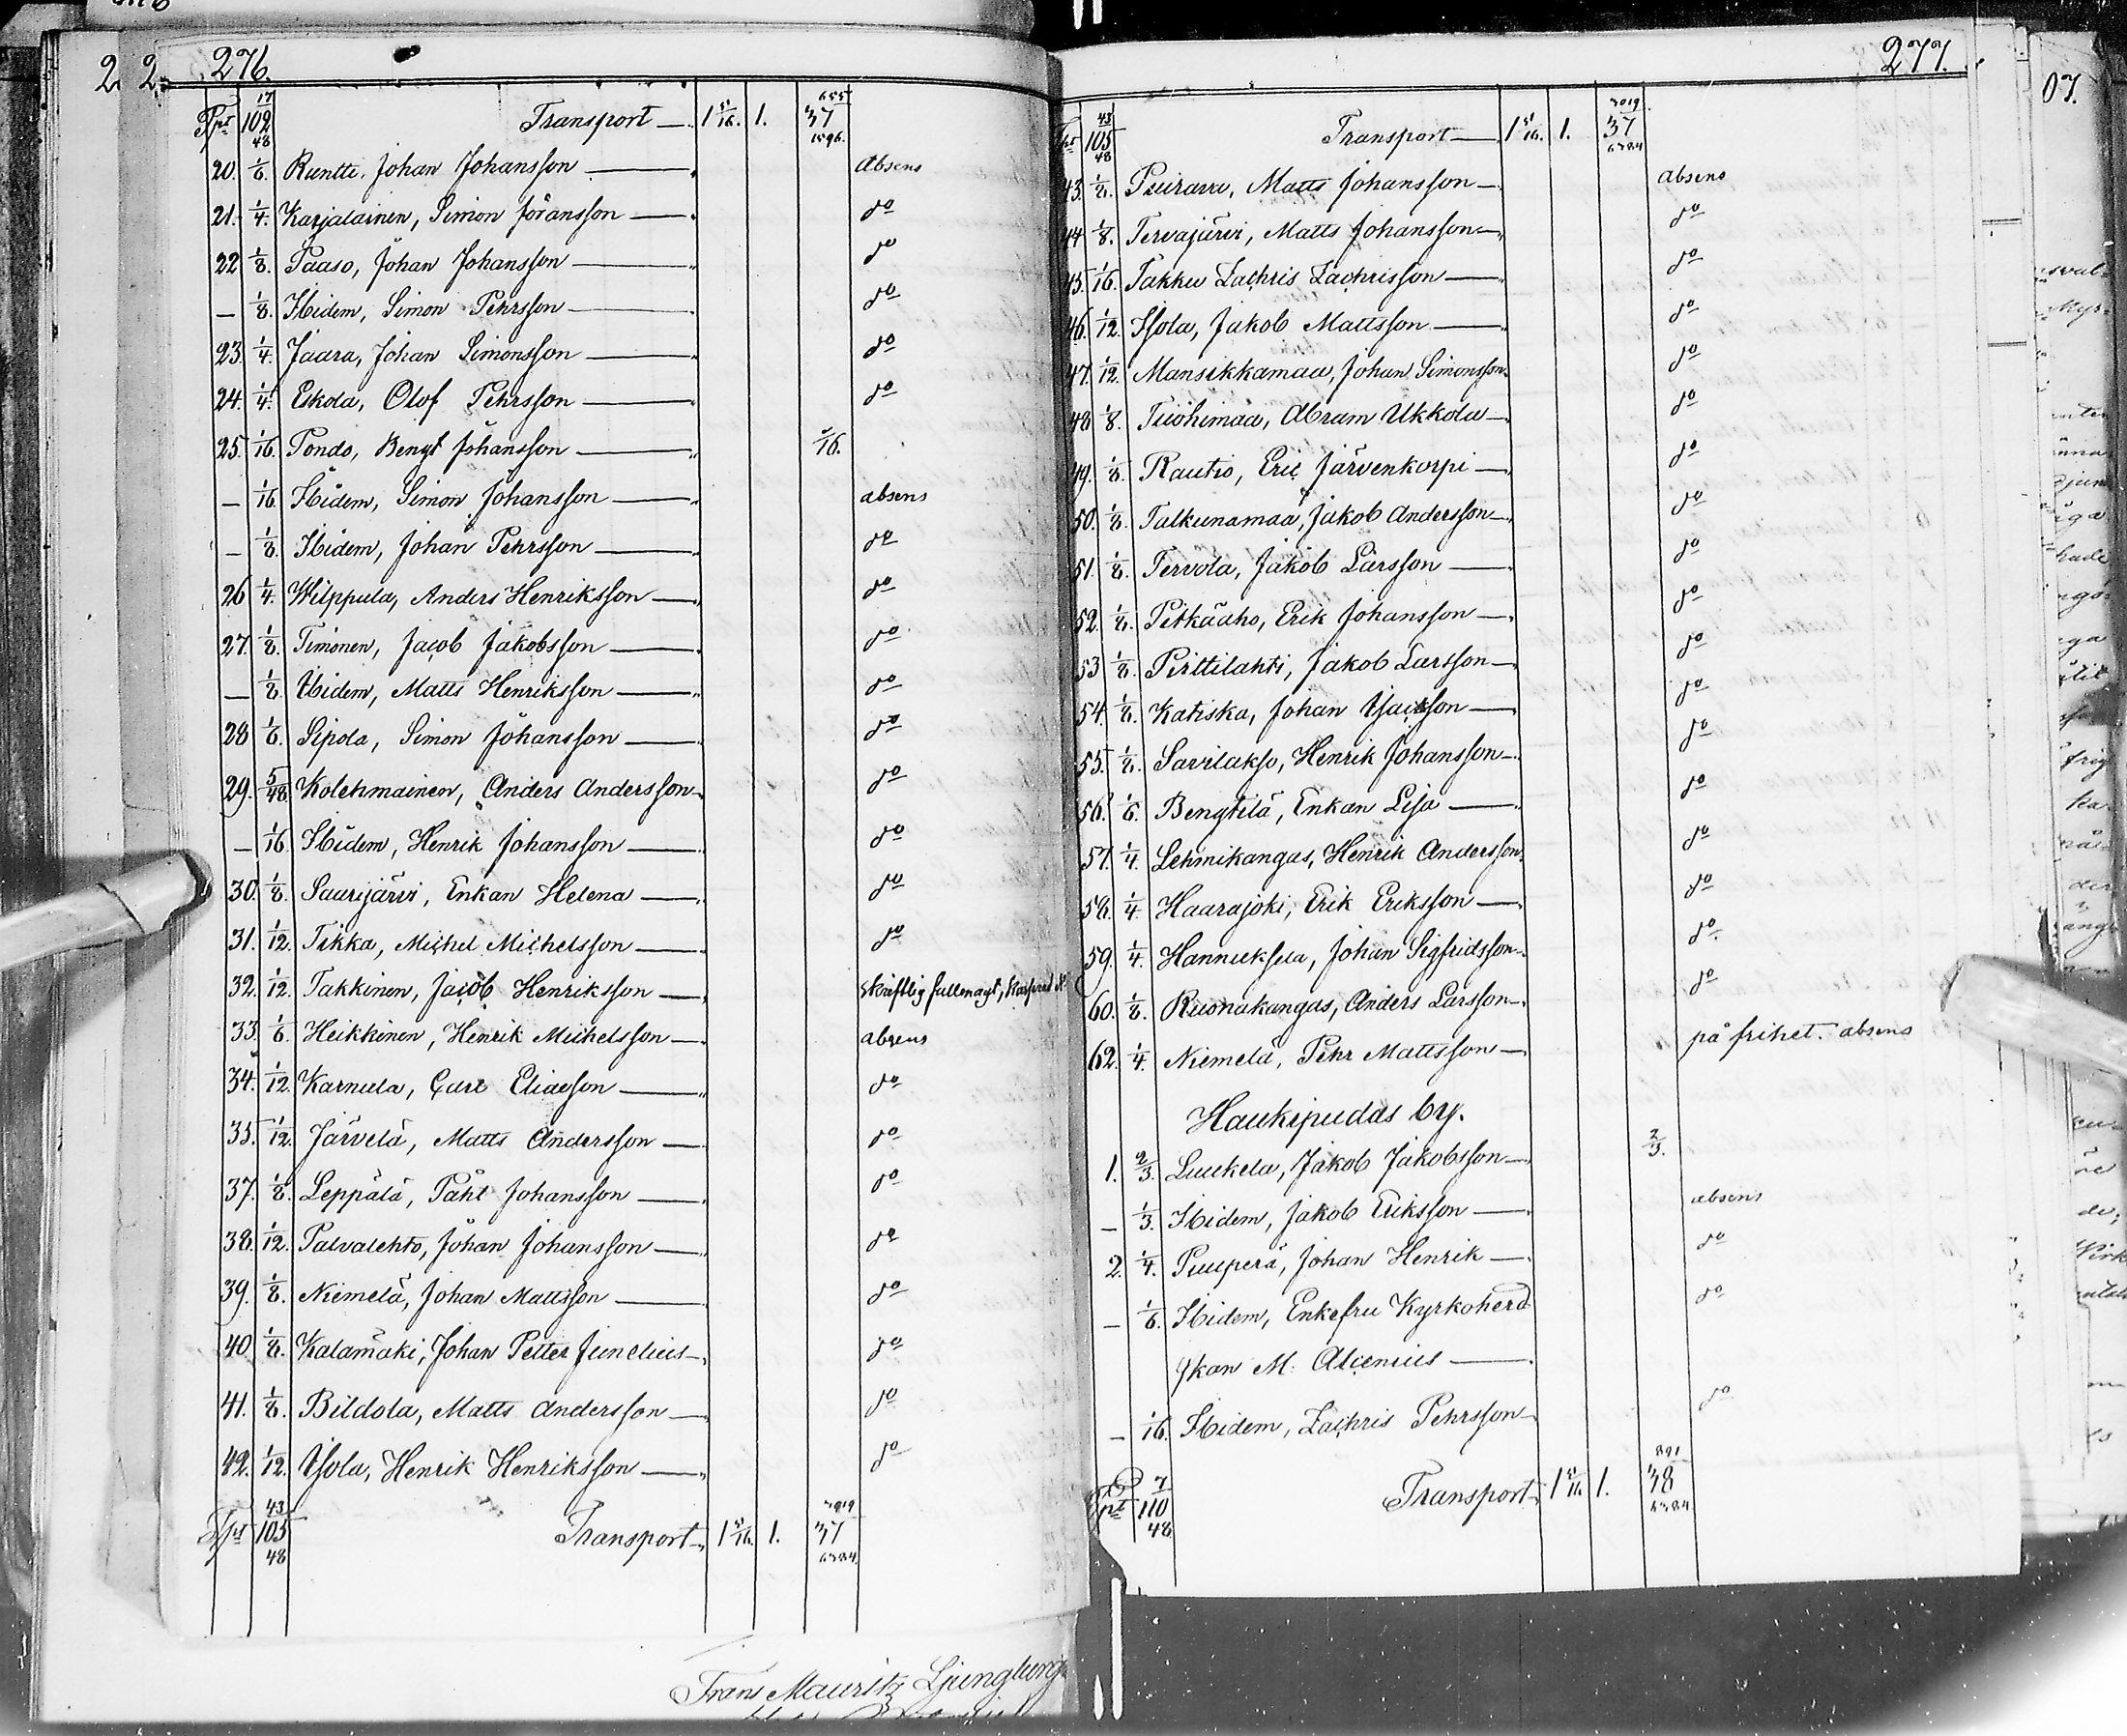 276.
Tpt 102 17/48 Transport — 1 5/16. 1. 37 655/1596.
20. 1/6. Runtti, Johan Johansson — absens
21. 1/4. Karjalainen, Simon Göransson — do
22 1/8. Paaso, Johan Johansson — do
— 1/8. Ibidem, Simon Pehrsson — do
23. 1/4. Jaara, Johan Simonsson — do
24. 1/4. Eskola, Olof Pehrsson — do
25. 1/16. Tondo, Bengt Johansson — 1/16.
— 1/16. Ibidem, Simon Johansson — absens
— 1/8. Ibidem, Johan Pehrsson — do
26 1/4. Wilppula, Anders Henriksson — do
27. 1/8. Timonen, Jacob Jakobsson — do
— 1/8. Ibidem, Matts Henriksson — do
28 1/6. Sipola, Simon Johansson — do
29. 5/48 Kolehmainen, Anders Andersson — do
— 1/16. Ibidem, Henrik Johansson — do
30. 1/8. Saarijärvi, Enkan Helena — do
31. 1/12. Tikka, Michel Michelsson — do
32. 1/12. Takkinen, Jacob Henriksson — skriftlig fullmagt,
33. 1/6. Heikkinen, Henrik Michelsson — absens
34. 1/12. Karnula, Carl Eliasson — do
35. 1/12. Järvelä, Matts Andersson — do
37. 1/8. Leppälä, Påhl Johansson — do
38. 1/12. Palvalehto, Johan Johansson — do
39. 1/8. Niemelä, Johan Mattsson — do
40 1/8. Kalamäki, Johan Petter Junelius — do
41. 1/8. Bildola, Matts Andersson — do
42. 1/12. Isola, Henrik Henriksson — do
Tpt 105 43/48 Transport — 1 5/16. 1. 37
Frans Mauritz Ljunglung
277.
Tpt 105 43/48 Transport — 1 5/16. 1. 37
43. 1/8. Puirava, Matts Johansson — absens
44 1/8. Tervajärvi, Matts Johansson — do
45. 1/16. Takku Zachris Zachrisson — do
46. 1/12. Isola, Jakob Mattsson — do
47. 1/12. Mansikkamaa, Johan Simonsson — do
48 1/8. Tuohimaa, Abram Ukkola — do
49. 1/8. Rautio, Eric Järvenkorpi — do
50. 1/8. Talkunamaa, Jakob Andersson — do
51. 1/8. Tervola, Jakob Larsson — do
52. 1/8. Pitkäaho, Erik Johansson — do
53 1/8. Pirttilahti, Jakob Larsson — do
54. 1/8. Katiska, Johan Isacsson — do
55. 1/8. Savilakso, Henrik Johansson — do
56. 1/6. Bengtilä, Enkan Lisa — do
57. 1/4. Lehmikangas, Henrik Andersson — do
58. 1/4. Haarajoki, Erik Eriksson — do
59. 1/4. Hannuksela, Johan Sigfridsson — do.
60. 1/8. Ruonakangas, Anders Larsson — do
62. 1/4. Niemelä, Pehr Mattsson — på frihet. absens
Haukipudas by.
1. 2/3. Luukela, Jakob Jakobsson — 2/3.
— 1/3. Ibidem, Jakob Eriksson — absens
2. 1/4. Puuperä, Johan Henrik — do
— 1/6. Ibidem, Enkefru Kyrkoherd do
skan M. Alcenius —
— 1/16. Ibidem, Zachris Pehrsson — do
Tpt 110 7/48 Transport — 1 5/16. 1. 38
07.